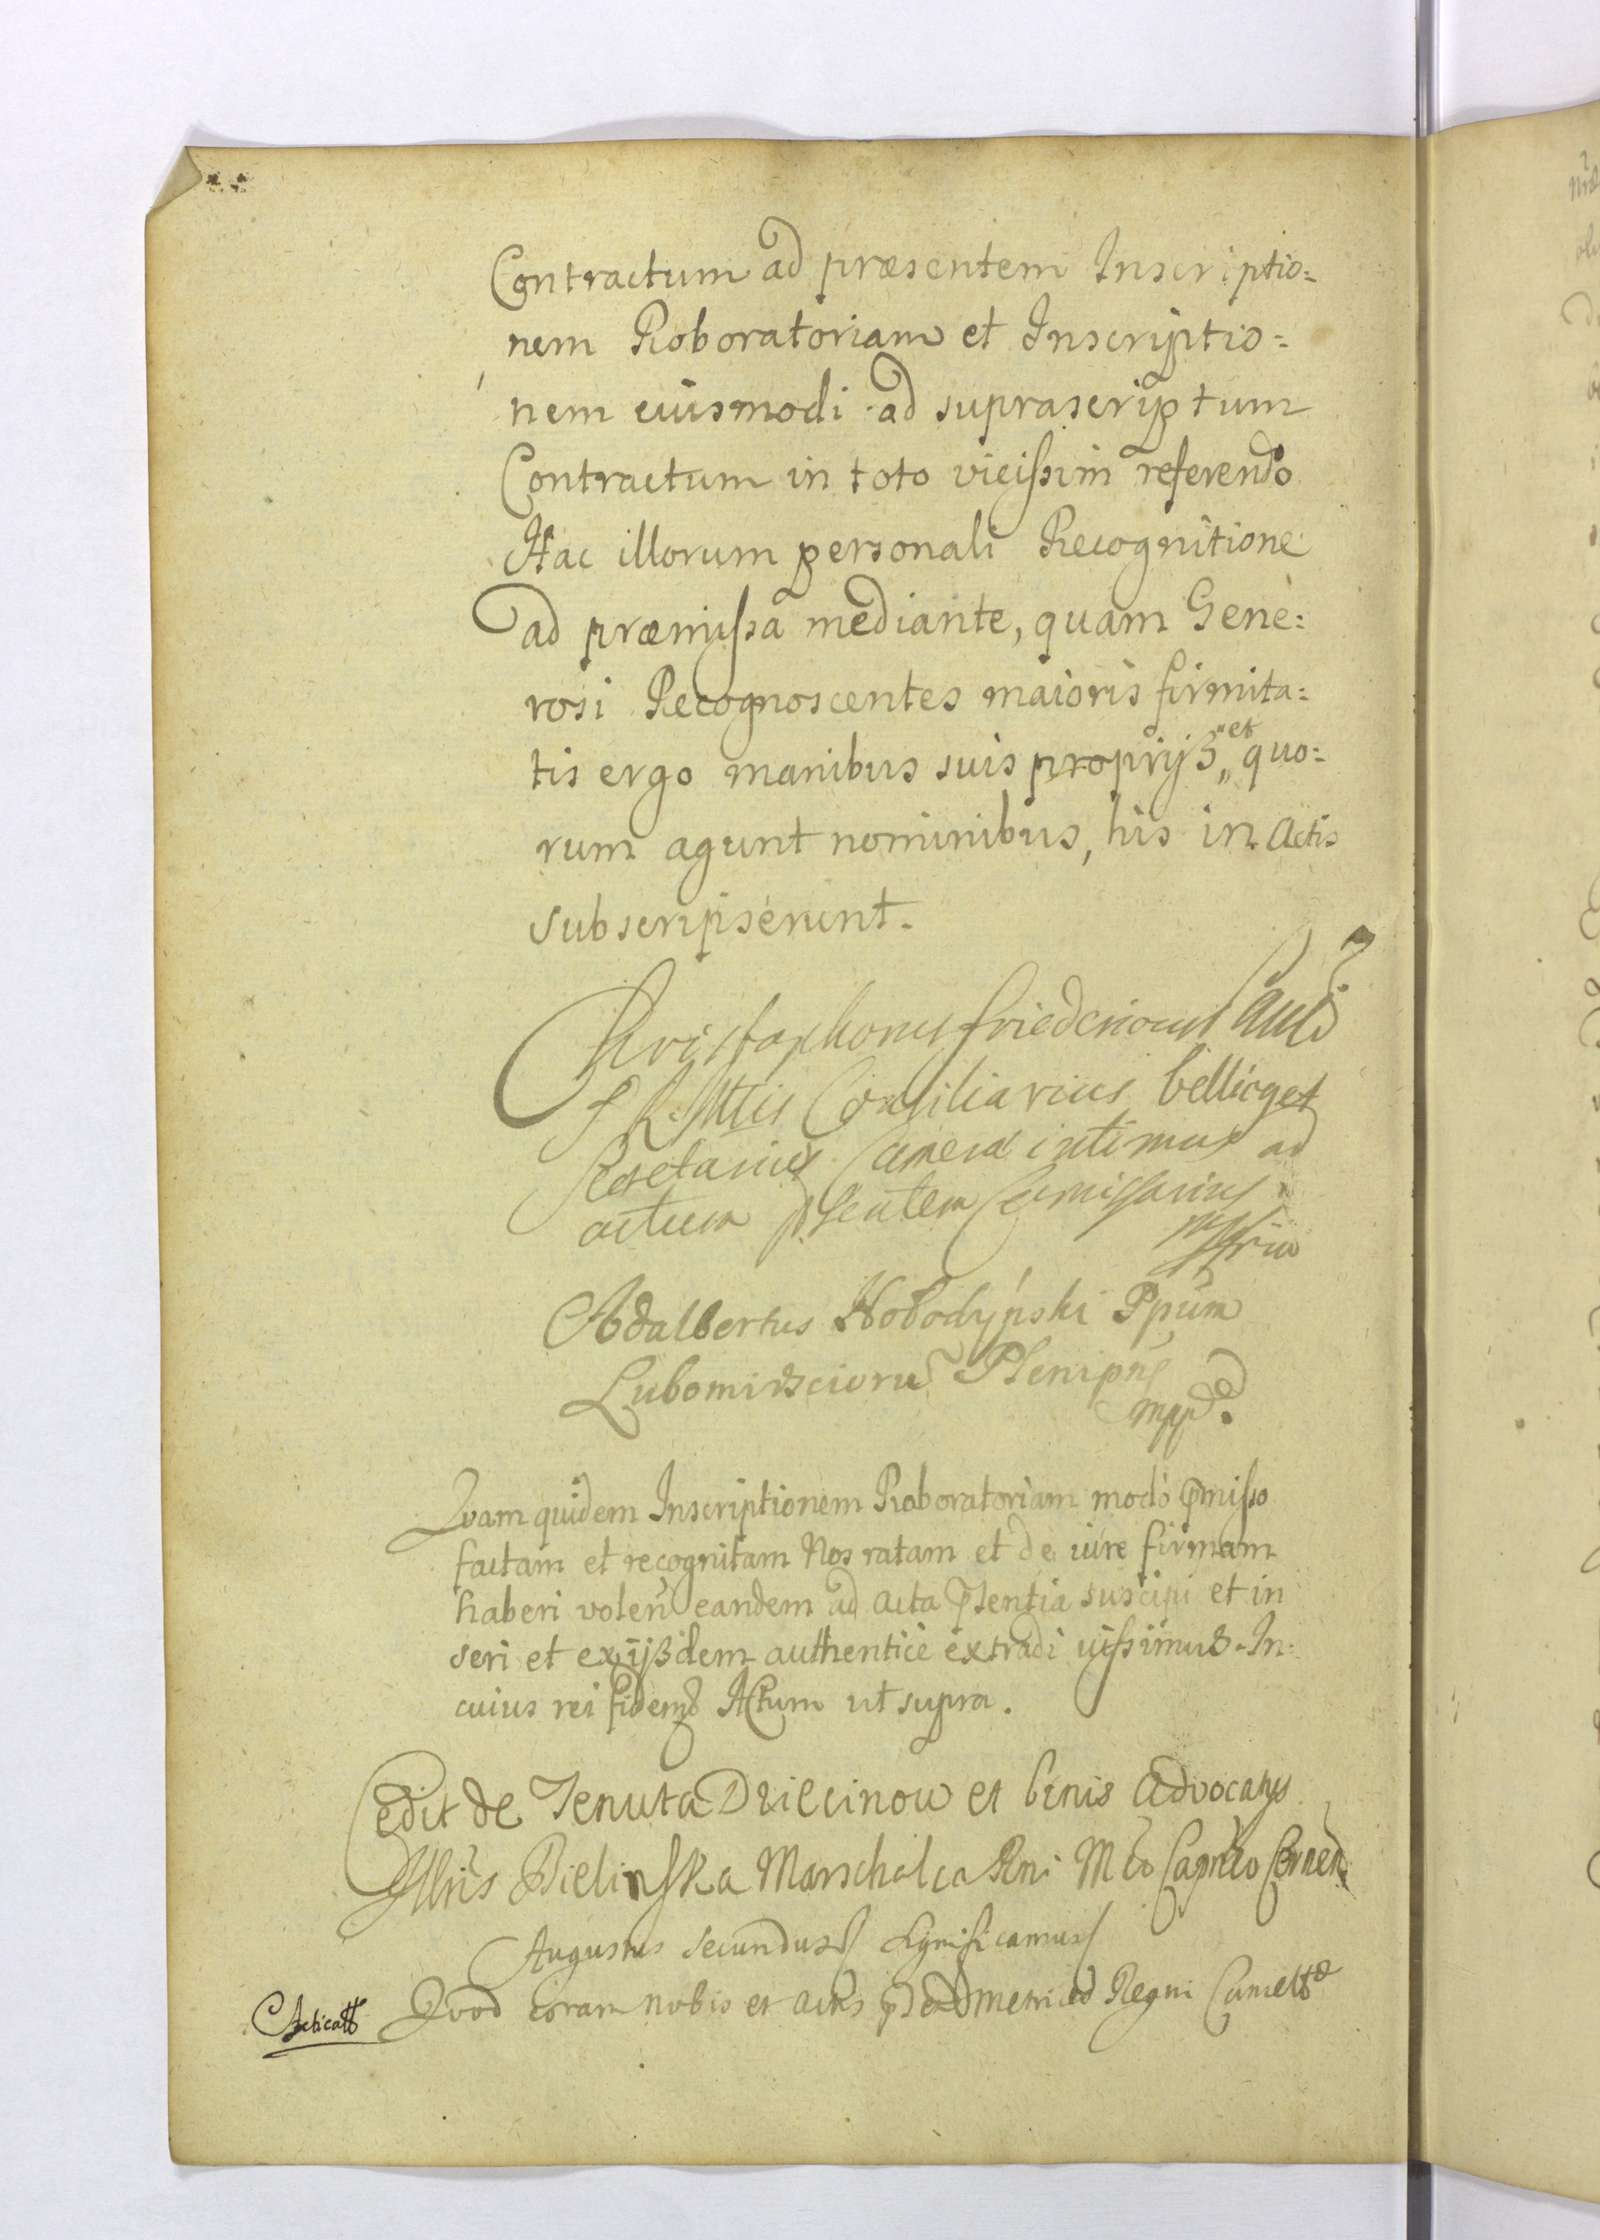 Contractum ad præsentem Inscriptio=
nem Roboratoriam et Inscriptio=
nem eiusmodi ad suprascriptum
Contractum in toto vicissim referendo
Hac illorum personali Recognitione
ad præmissa mediante, quam Gene=
rosi Recognoscentes maioris firmita=
tis ergo manibus suis proprijs „et quo=
rum agunt nominibus, his in Actis
subscripserunt.
Christophorus Friedericus
Consiliarius bellicq et
Secretarius Cameræ intimus ad
actum pñsentem Comissarius
mppria
Adalbertus Hobodyński Ppum
Lubomirsciorū Plenipñs
mpp.
Quam quidem Inscriptionem Roboratoriam modo pmisso
factam et recognitam Nos ratam et de iure firmam
haberi voleñ eandem ad acta psentia suscipi et in
seri et ex ijsdem authentice extradi iussimus. In
cuius rei fidem Actum ut supra.
Cedit de Tenuta Dziecinow et bonis Advocatys
Illris Bielinska Marschalca Rni Mco
Augustus Secundus Significamus
Quod coram nobis et actis Metrices Regni Cancell